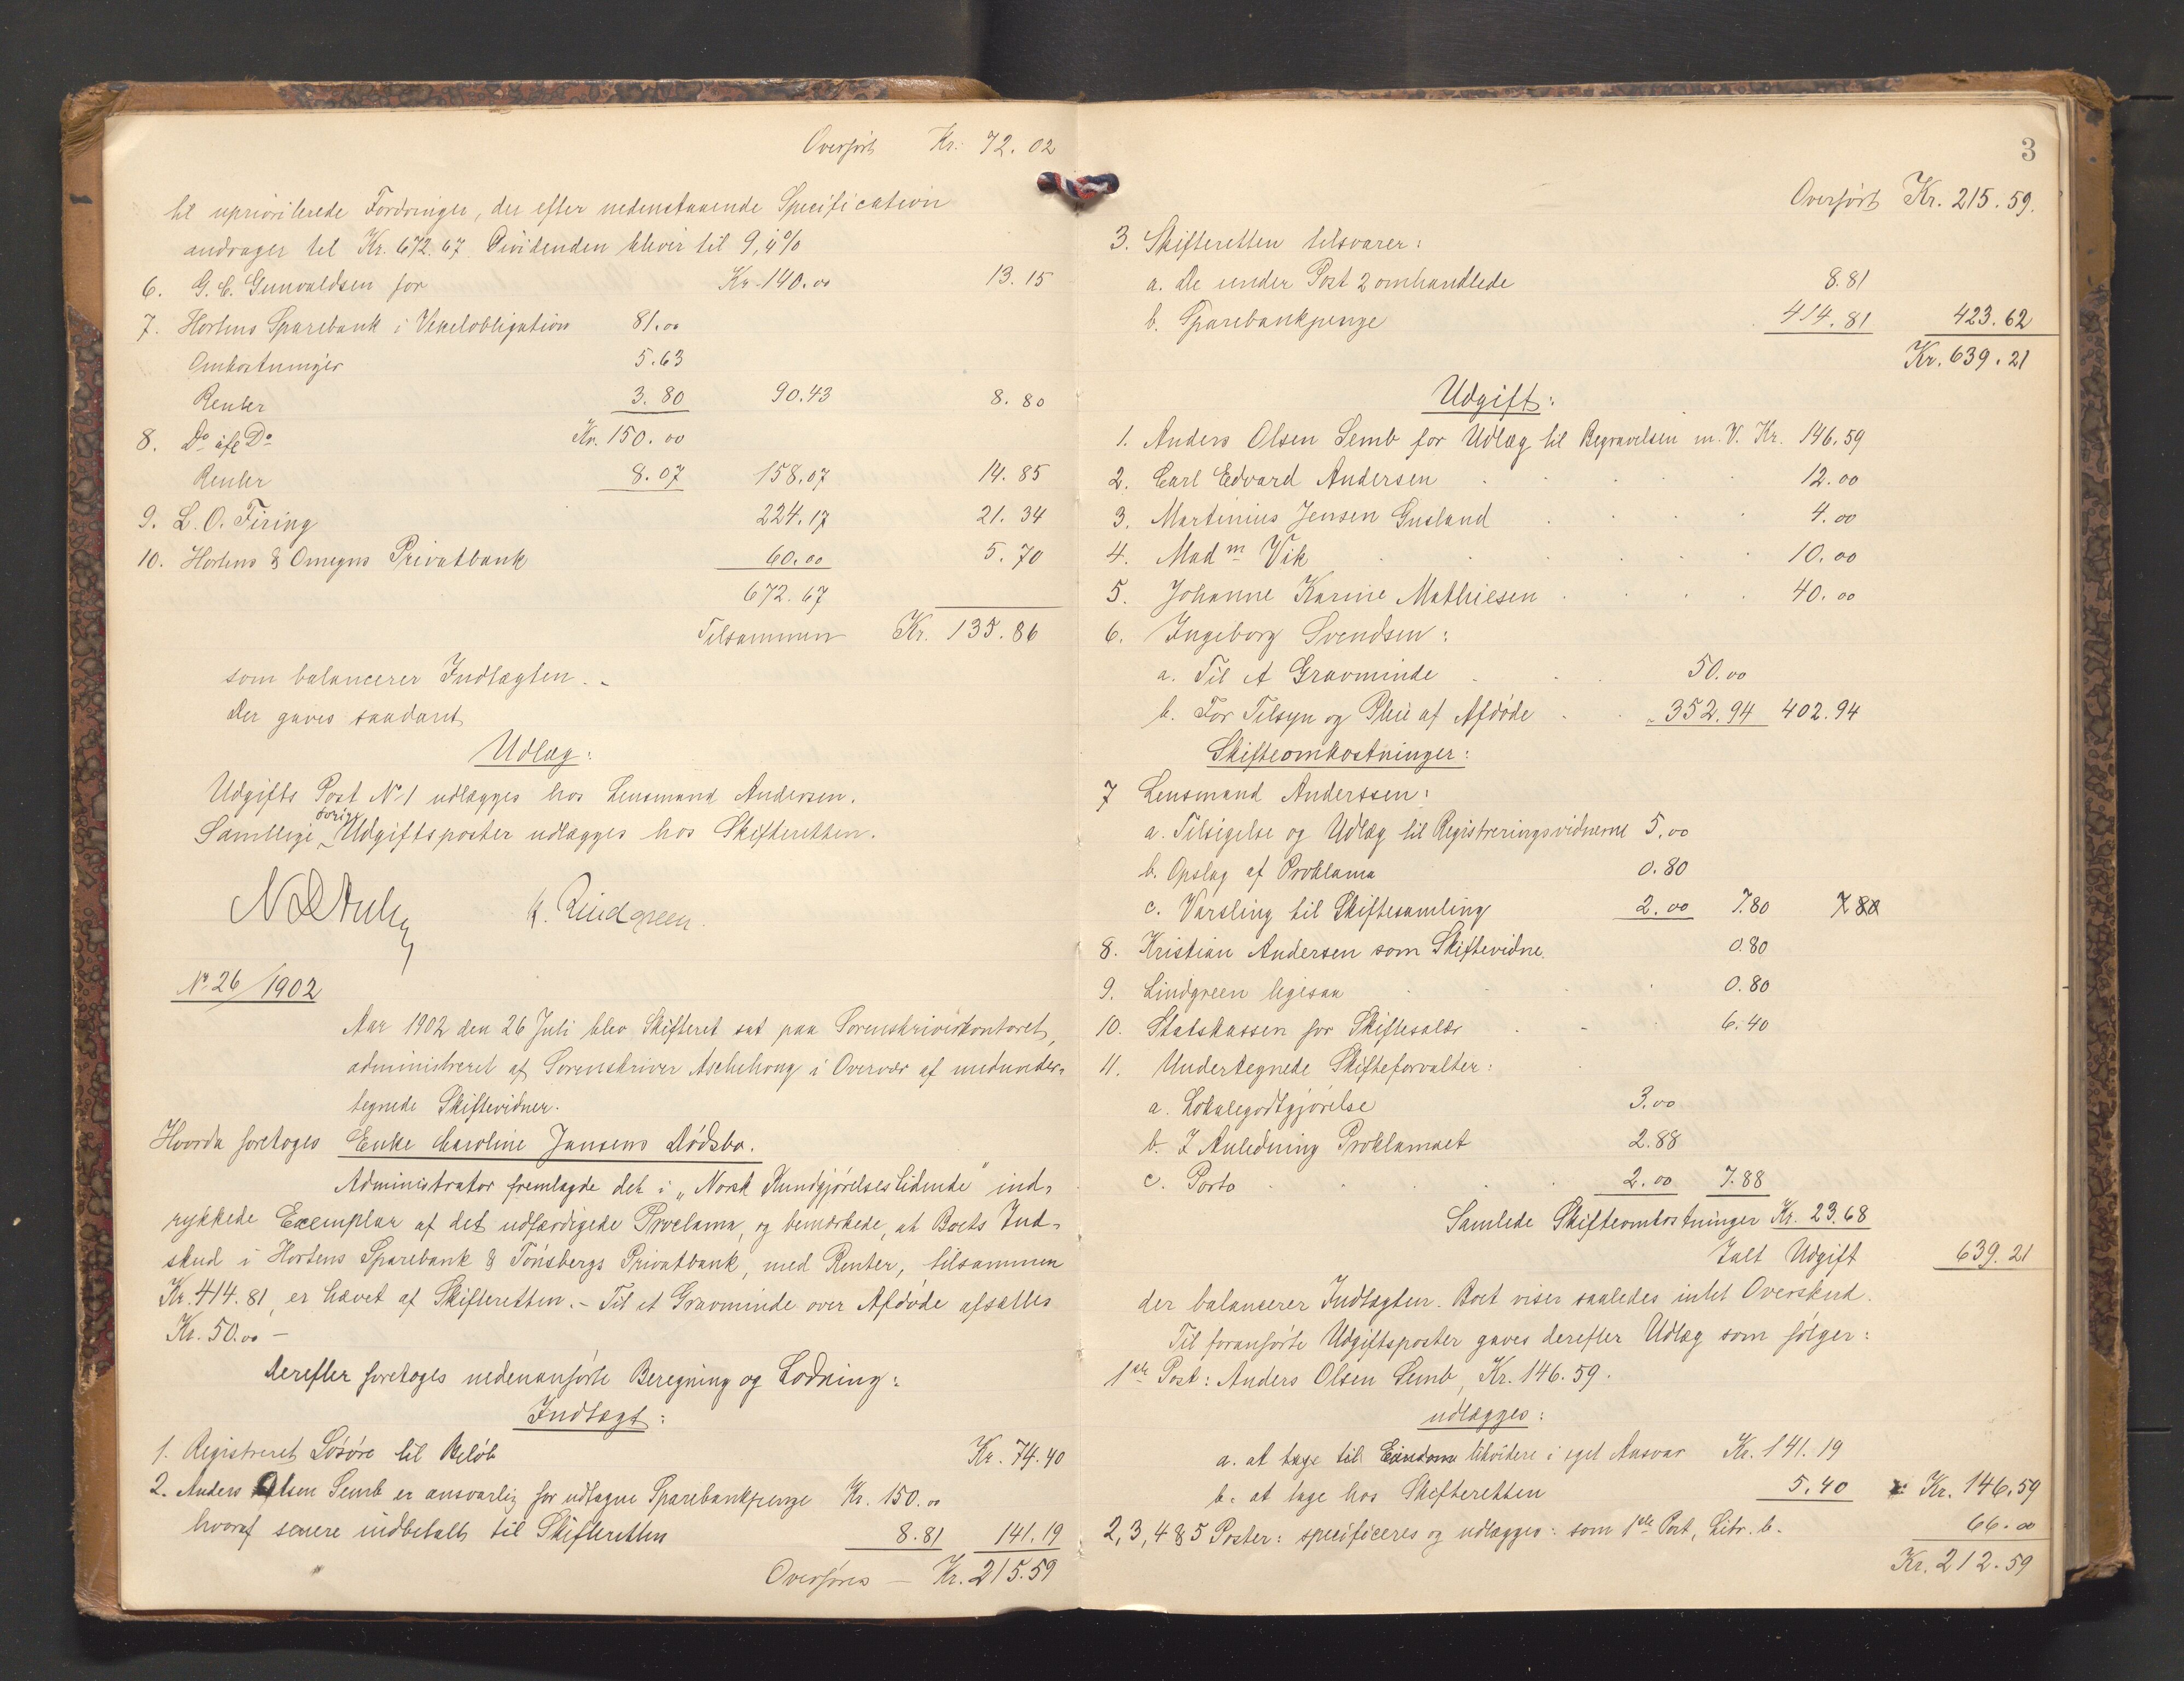 Overført Kr. 72.02
til uprioriterede Fordringer, der efter nedenstaaende Specification
andrager til Kr. 672.67 Dividenden bliver til 9,4%
6. G. C. Gunvaldsen for Kr 140.00 13.15
7. Hortens Sparebank i Vexelobligation 81.00
Omkostninger 5.63
Renter 3.80 90.43 8.80
8. Do af Do Kr. 150.00
Renter 8.07 158.07 14.85
9. L. O. Firing 224.17 21.34
10. Hortens & Omegns Privatbank 60.00 5.70
672.67
Tilsammen Kr. 135.86
som balancerer Indtægten. -
Der gaves saadant
Udlæg:
Udgifts Post No 1 udlægges hos Lensmand Andersen.
Samtlige øvrige Udgiftsposter udlægges hos Skifteretten.
K. Lindgreen.
No 26/1902
Aar 1902 den 26 Juli blev Skifteret sat paa Sorenskriverkontoret,
administreret af Sorenskriver Aschehoug i Overvær af medunder-
tegnede Skiftevidner.
Hvorda foretoges Enke Caroline Jansens Dødsbo.
Administrator fremlagde det i "Norsk Kundgjørelsestidende" ind-
rykkede Exemplar af det udfærdigede Proclama, og bemærkede, at Boets Ind-
skud i Hortens Sparebank & Tønsbergs Privatbank, med Renter, tilsammen
Kr. 414.81, er hævet af Skifteretten. - Til et Gravminde over Afdøde afsættes
Kr. 50.00 -
Derefter foretoges nedenanførte Beregning og Lodning:
Indtægt:
1. Registreret Løsøre til Beløb Kr. 74.40
2. Anders Olsen Semb er ansvarlig for udtagne Sparebankpenge Kr. 150.00
hvoraf senere indbetalt til Skifteretten 8.81 141.19
Overføres - Kr. 215.59
3
Overført Kr. 215.59.
3. Skifteretten tilsvarer:
a. De under Post 2 omhandlede 8.81
b. Sparebankpenge 414.81 423.62
Kr. 639.21
Udgift:
1. Anders Olsen Semb for Udlæg til Begravelsen m. V. Kr. 146.59
2. Carl Edvard Andersen 12.00
3. Martinius Jensen Gusland 4.00
4. Mad m Vik 10.00
5. Johanne Karine Mathiesen 40.00
6. Ingeborg Svendsen:
a. Til et Gravminde 50.00
b. For Tilsyn og Pleie af Afdøde 352.94 402.94
Skifteomkostninger:
7 Lensmand Anderssen:
a. Tilsigelse og Udlæg til Registreringsvidnerne 5.00
b. Opslag af Proklama 0.80
c. Varsling til Skiftesamling 2.00 7.80 7.80
8. Kristian Andersen som Skiftevidne. 0.80
9. Lindgreen ligesaa 0.80
10. Statskassen for Skiftesalær 6.40
11. Undertegnede Skifteforvalter:
a. Lokalegodtgjørelse 3.00
b. I Anledning Proklamaet 2.88
c. Porto 2.00 7.88
Samlede Skifteomkostninger Kr. 23.68
Ialt Udgift 639.21
der balancerer Indtægten. Boet viser saaledes intet Overskud.
Til foranførte Udgiftsposter gaves derefter Udlæg som følger:
1ste Post: Anders Olsen Semb, Kr. 146.59.
udlægges:
a. at tage til Eiendom likvidere i eget Ansvar Kr. 141.19
b. at tage hos Skifteretten 5.40 Kr. 146.59
2, 3, 4 & 5 Poster: specificeres og udlægges: som 1ste Post, Litr. b. 66.00
Kr. 212.59